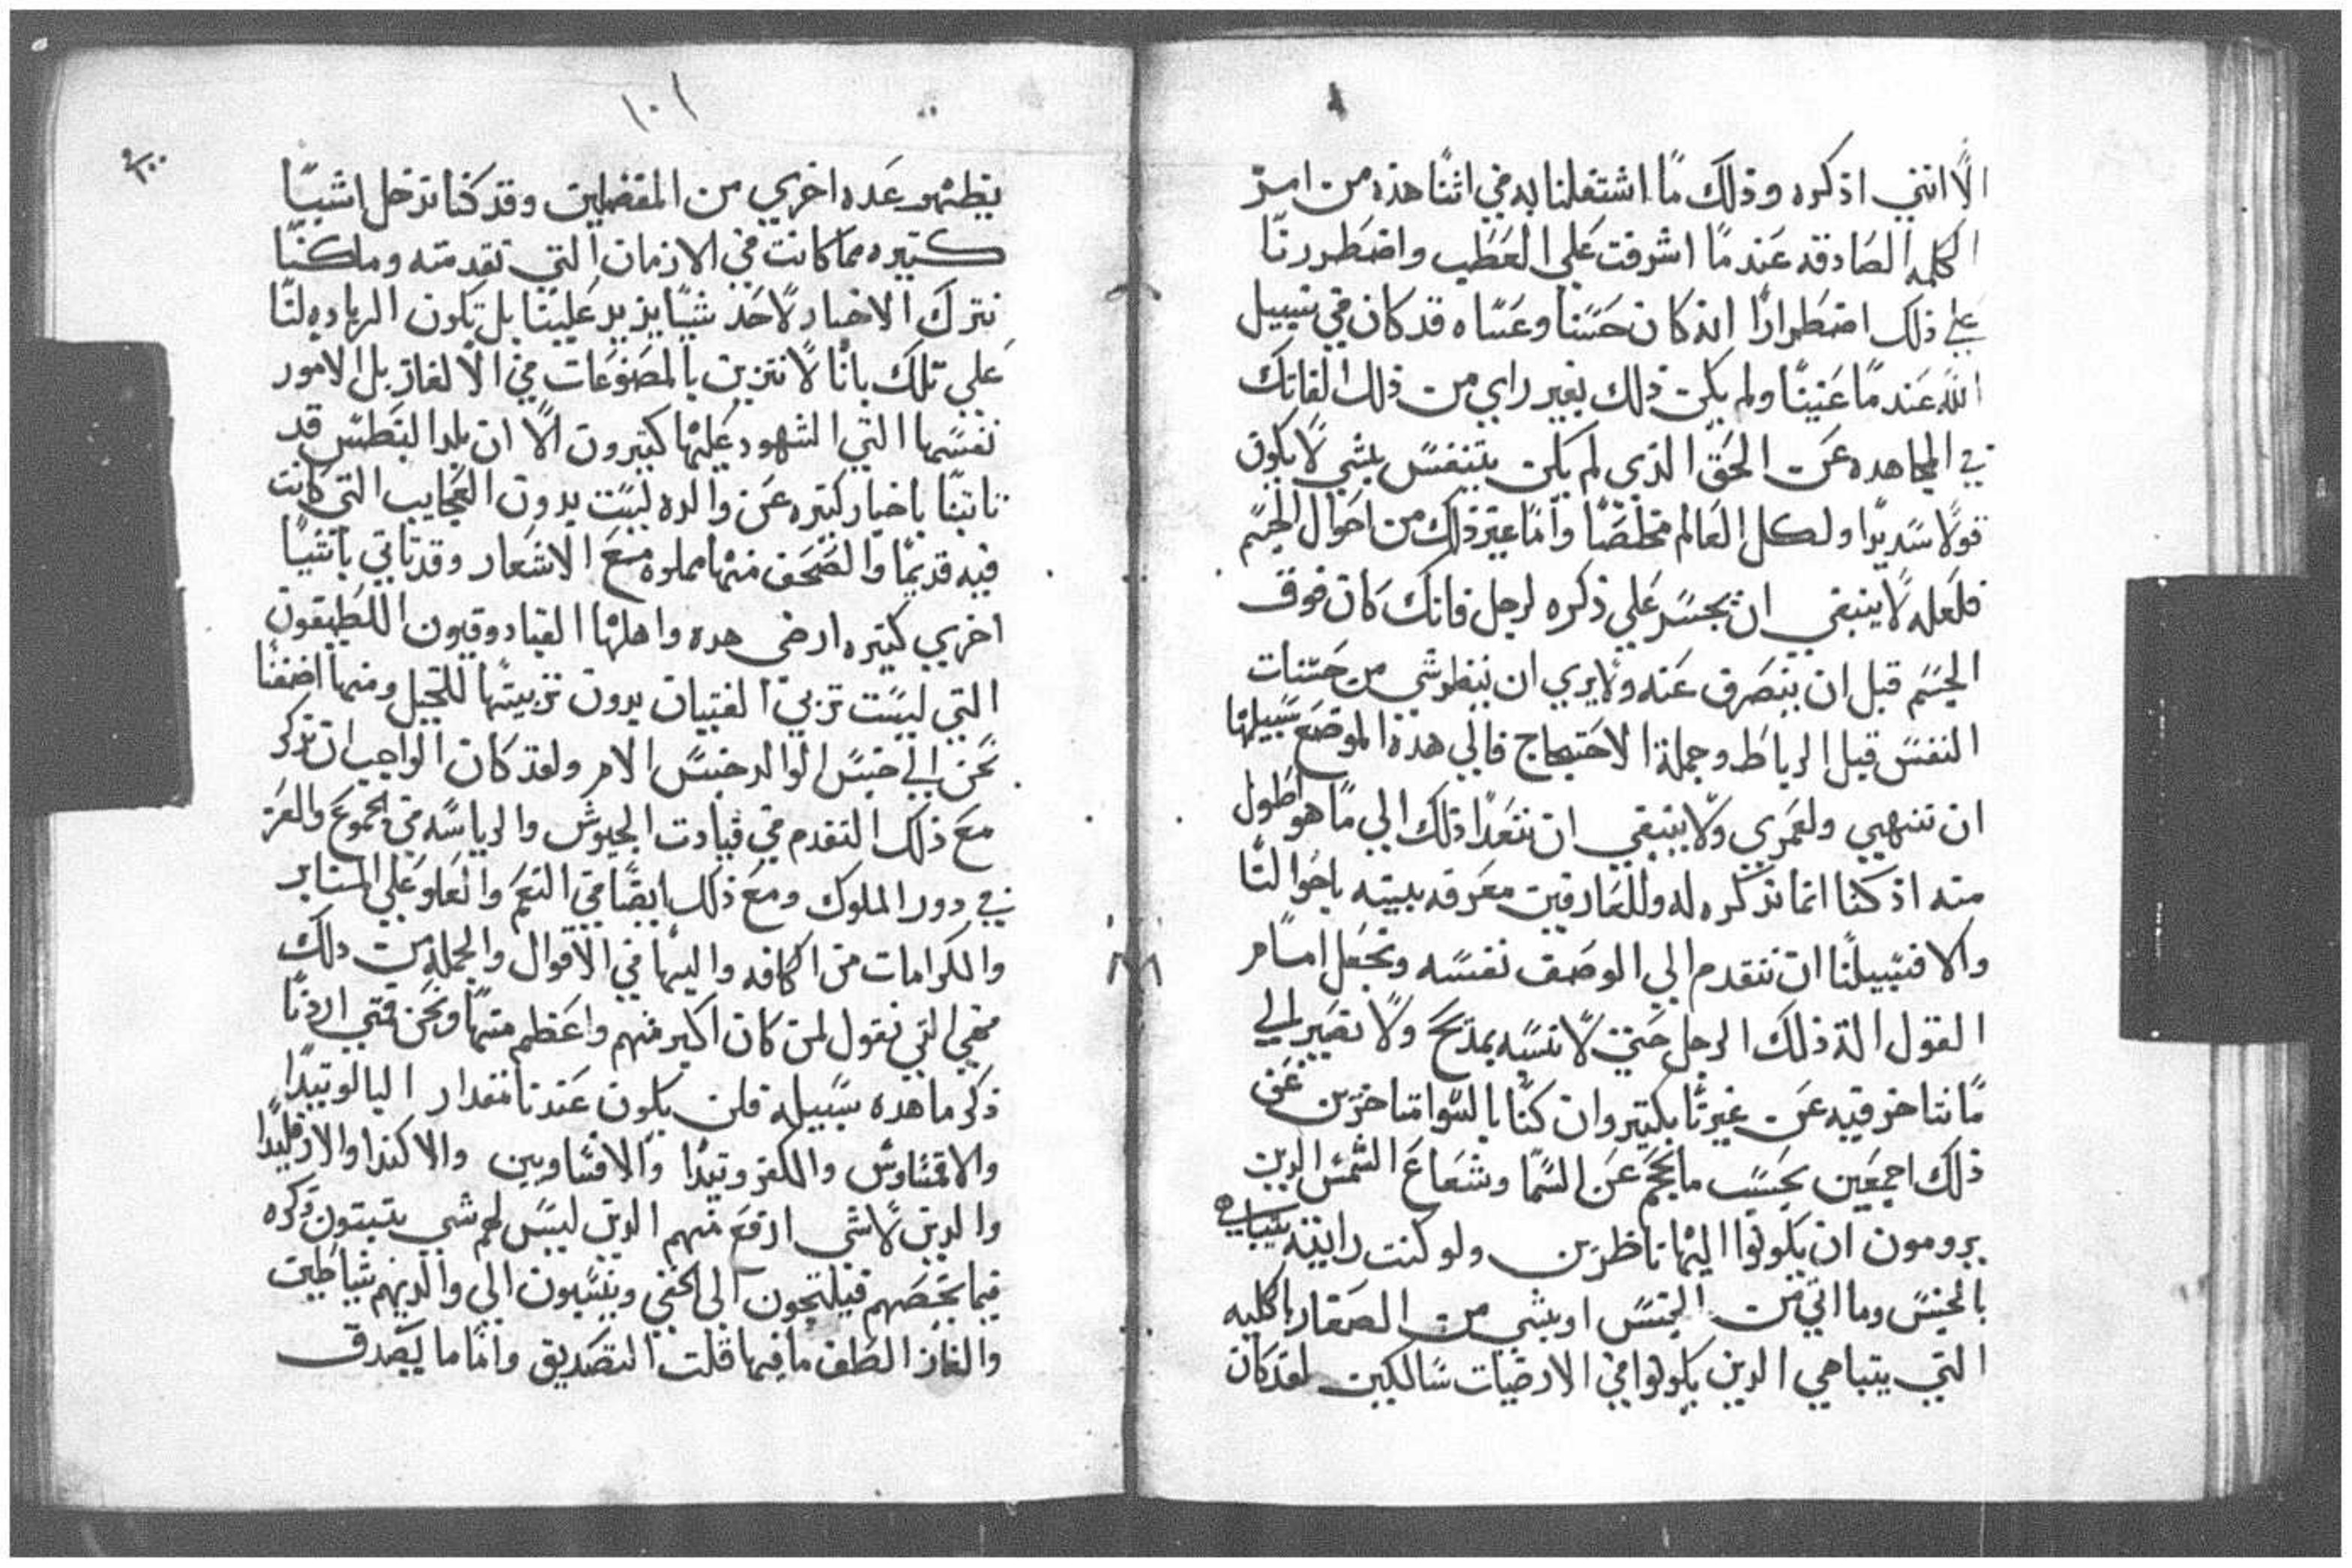 الا انني اذكره وذلك ما اشتغلنا به في اثنا هذه من امر
الكلمه الصادقه عندما اشرفت علي العطب واضطررنا
علي ذلك اضطرارًا انه كان حسنا وعساه قد كان في سبيل
الله عندما عنينا ولم يكن ذلك بغير راي من ذلك الفاتك
في المجاهده عن الحق الذي لم يكن يتنفس بشي لا يكون
قولا سديدًا ولكل العالم مخلصًا واما غير ذلك من احوال الجسم
فلعله لا ينبغي ان يجسر علي ذكره لرجل فانك كان فوق
الجسم قبل ان ينصرف عنه ولا يري ان ينظر شي من حسنات
النفس قبل الرباط وجملة الاحتجاج فالي هذة الموضع سبيلها
ان تنتهي ولعمري ولا ينبغي ان نتعدا ذلك الي ما هو اطول
منه اذ كنا انما نذكره له وللعارفين معرفه بينه باحوالنا
والا فسبيلنا ان نتقدم الي الوصف نفسه ونجعل امام
القول الة ذلك الرجل حتي لا نسه بمدح ولا نصير الي
ما نتاخر فيه عن غيرنا بكتير وان كنا بالسوا متاخرين عن
ذلك اجمعين بحسب ما نجم عن السما وشعاع الشمس الدين
يرومون ان يكونوا اليها ناظرين ولو كنت رايته يتباهي
بالجنس وما اتي من الجنس او بشي من الصغار باكليه
التي يتباهي الدين يكونوا في الارضيات سالكين لقد كان
١٠١
يظهر عده اخري من المفضلين وقد كنا ندخل اشييًا
كتيره مما كانت في الازمان التي تقدمته وما كنا
نترك الاخبار لاحد شيًا يزيد علينا بل تكون الرياده لنا
علي تلك بانا لا نتزين بالمصنوعات في الالغاز بل الامور
نفسها التي الشهود عليها كتيرون الا ان بلد البنطس قد
تاتينا باخبار كتيره عن والده ليست بدون العجايب التي كانت
فيه قديمًا والصحف منها مملوه مع الاشعار وقد تاتي باشيا
اخري كتيره ارضي هده واهلها القبادوقيون اللطيفون
التي ليست تربي الفتيان بدون تربيتها للخيل ومنها اضفنا
نحن الي جنس الوالد جنس الام ولقد كان الواجب ان نذكر
مع ذلك التقدم في قيادت الجيوش والرياسه في الجموع والعز
في دور الملوك ومع ذلك ايضًا في النعم والعلو علي المنابر
والكرامات من الكافه واليها في الاقوال والجمله من دلك
فهي التي نقول لمن كان اكبر منهم واعظم منها ونحن متي اردنا
ذكر ما هده سبيله فلن يكون عندنا مقدار البالوتيدا
والاقمناوش والككروتيدا والافساويين والاكندا والارقليدا
والدين لا شي ارفع منهم الدين ليس لهم شي يتبتون ذكره
فيما يخصهم فيلتجون الي الخفي وينسبون الي والديهم شياطين
والغاز الطف ما فيها قلت التصديق واما ما يصدق